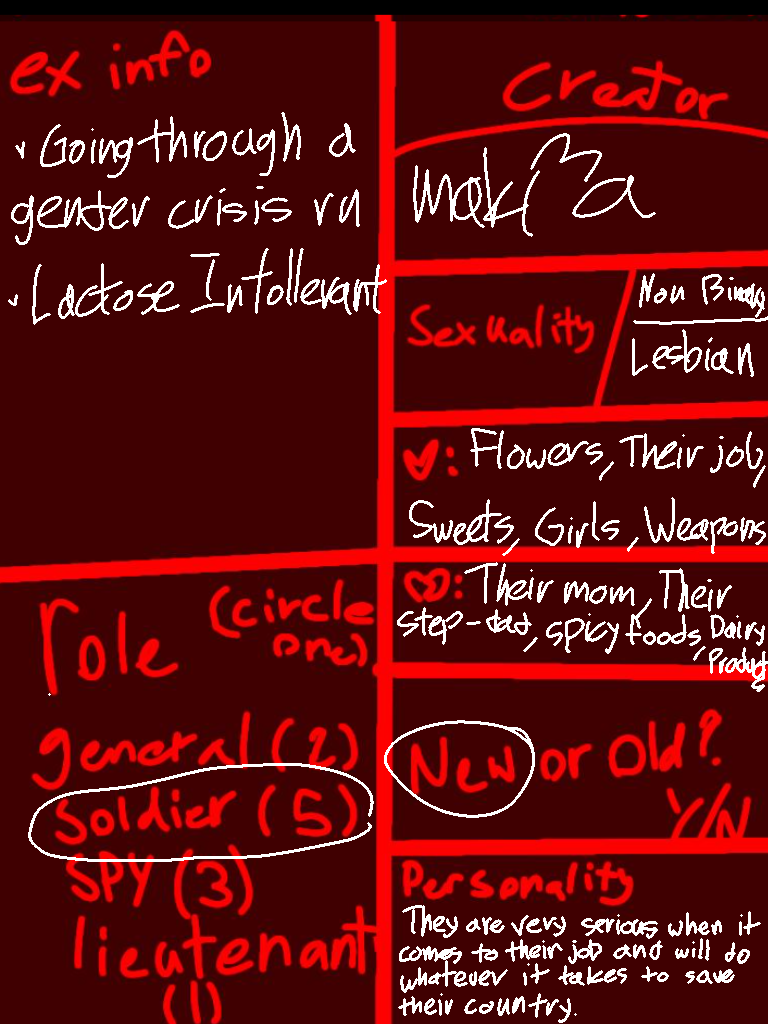 ex info
Going through a
genter crisis rn
Lactose Intollerant
role (circle
one)
general (2)
Soldier (5)
SPY (3)
lieutenant
(1)
Creator
Sexuality
Non Binary
Lesbian
: Flowers, Their job,
Sweets, Girls, Weapons
: Their mom, Their
step-dad, spicy foods, Dairy
Products
New or Old?
Y/N
Personality
They are very serious when it
comes to their job and will do
whatever it takes to save
their country.